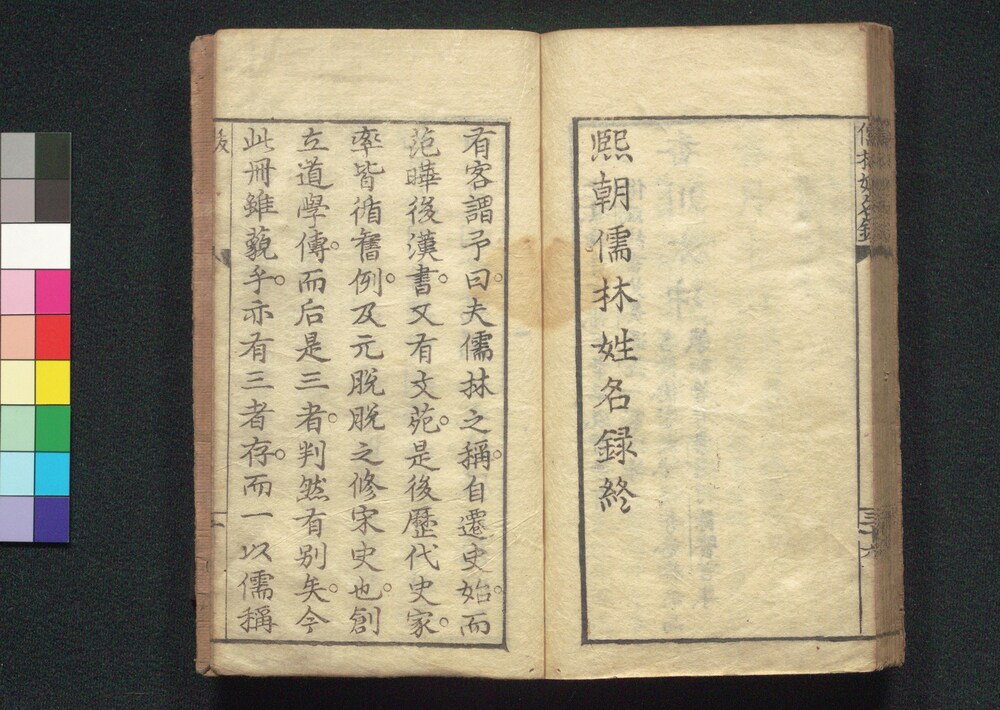 儒林姓名錄
三十六
熙朝儒林姓名錄終
有客謂予曰。夫儒林之稱。自遷史始。而
范曄後漢書。又有文苑。是後歷代史家。
率皆循舊例。及元脫脫之修宋史也。創
立道學傳。而后是三者。判然有別矣。今
此冊雖藐乎。亦有三者存。而一以儒稱